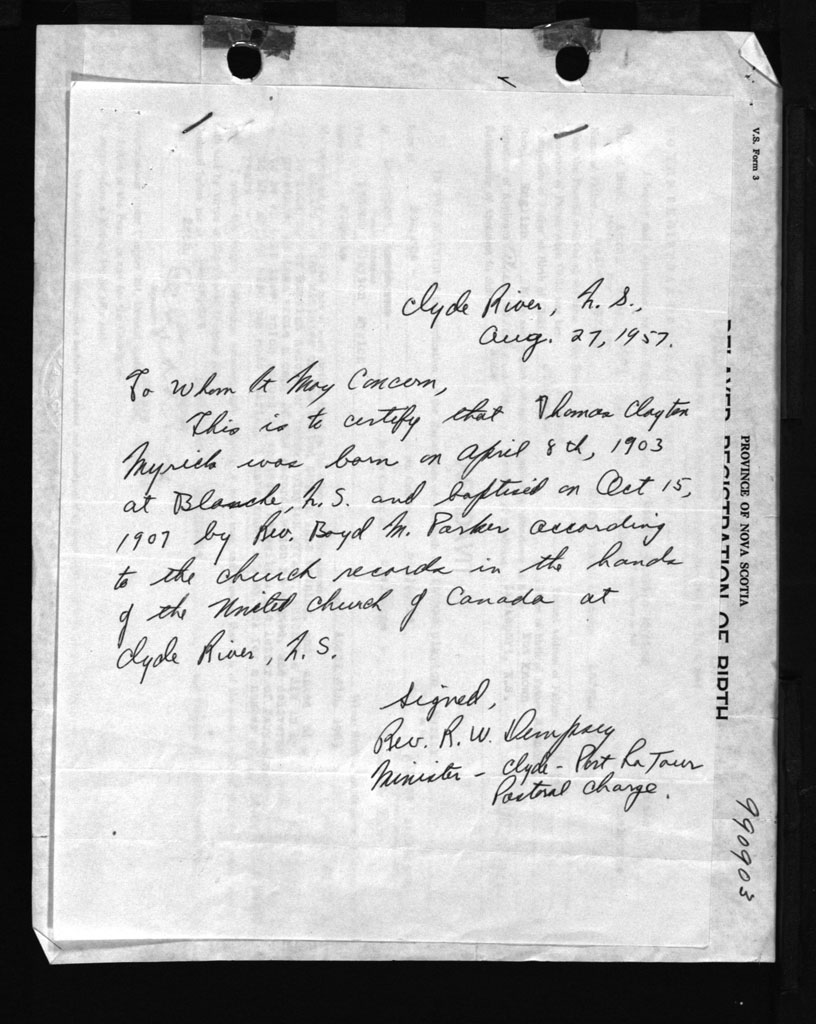 Clyde River, N. S.,
Aug. 27, 1957.
To Whom It May Concern,
This is to certify that Thomas Clayton
Myrick was born on April 8th, 1903
at Blanche, N. S. and baptised on Oct 15,
1907 by Rev. Boyd M. Parker according
to the church records in the hands
of the United Church of Canada at
Clyde River, N. S.
Signed,
Rev. R. W. Dempsey
Minister - Clyde - Port La Tour
Pastoral Charge.
V.S. Form 3
PROVINCE OF NOVA SCOTIA
REGISTRATION OF BIRTH
990903